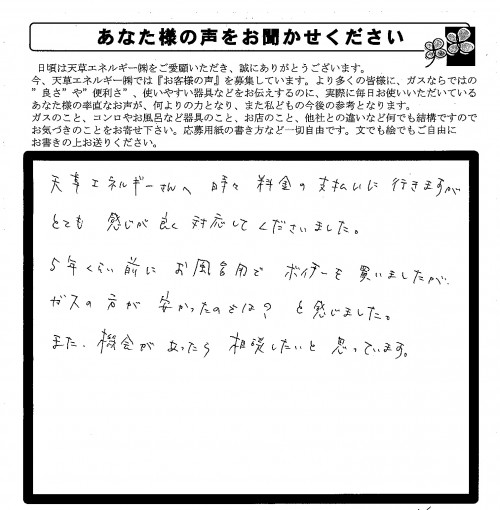 あなた様の声をお聞かせください
日頃は天草エネルギー㈱をご愛顧いただき、誠にありがとうございます。
今、天草エネルギー㈱では『お客様の声』を募集しています。より多くの皆様に、ガスならではの
”良さ”や”便利さ”、使いやすい器具などをお伝えするのに、実際に毎日お使いいただいている
あなた様の率直なお声が、何よりの力となり、また私どもの今後の参考となります。
ガスのこと、コンロやお風呂など器具のこと、お店のこと、他社との違いなど何でも結構ですので
お気づきのことをお寄せ下さい。応募用紙の書き方など一切自由です。文でも絵でもご自由に
お書きの上お送りください。
天草エネルギーさんへ 時々 料金の支払いに行きますが
とても 感じが良く 対応してくださいました。
5年くらい前に お風呂用で ボイラーを買いましたが、
ガスの方が 安かったのでは? と感じました。
また、機会があったら 相談したいと思っています。